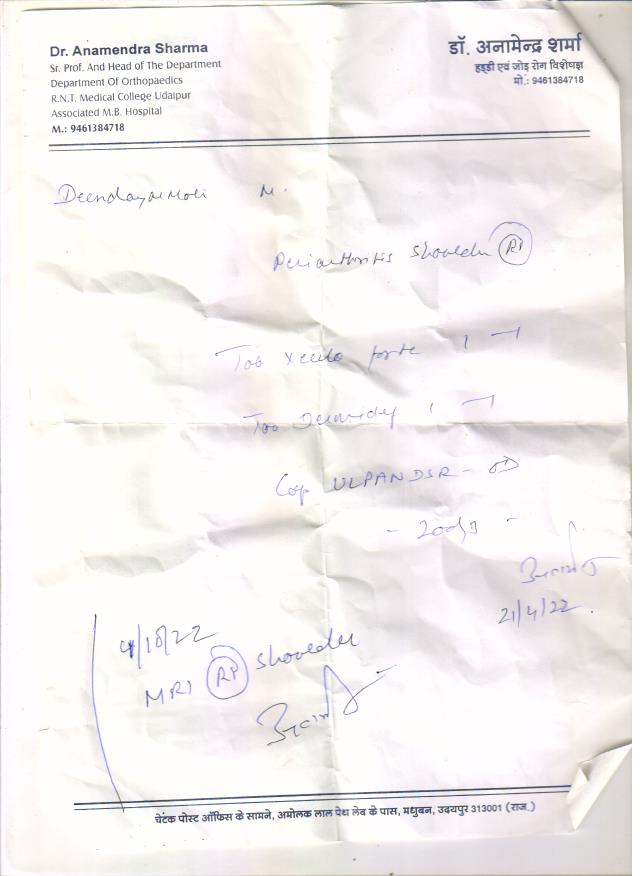 Dr. Anamendra Sharma
Sr. Prof. And Head of The Department
Department Of Orthopaedics
R.N.T. Medical College Udaipur
Associated M.B. Hospital
M.: 9461384718
डॉ. अनामेन्द्र शर्मा
हड्डी एवं जोड़ रोग विशेषज्ञ
मो.: 9461384718
M.
Periarthritis Shoulder Rt
Tab forte 1
Tab 1
Cap ULPAN DSR - OD
21/4/22.
4/10/22
MRI Rt Shoulder
चेटक पोस्ट ऑफिस के सामने, अमोलक लाल पेथ लेब के पास, मधुबन, उदयपुर 313001 (राज.)